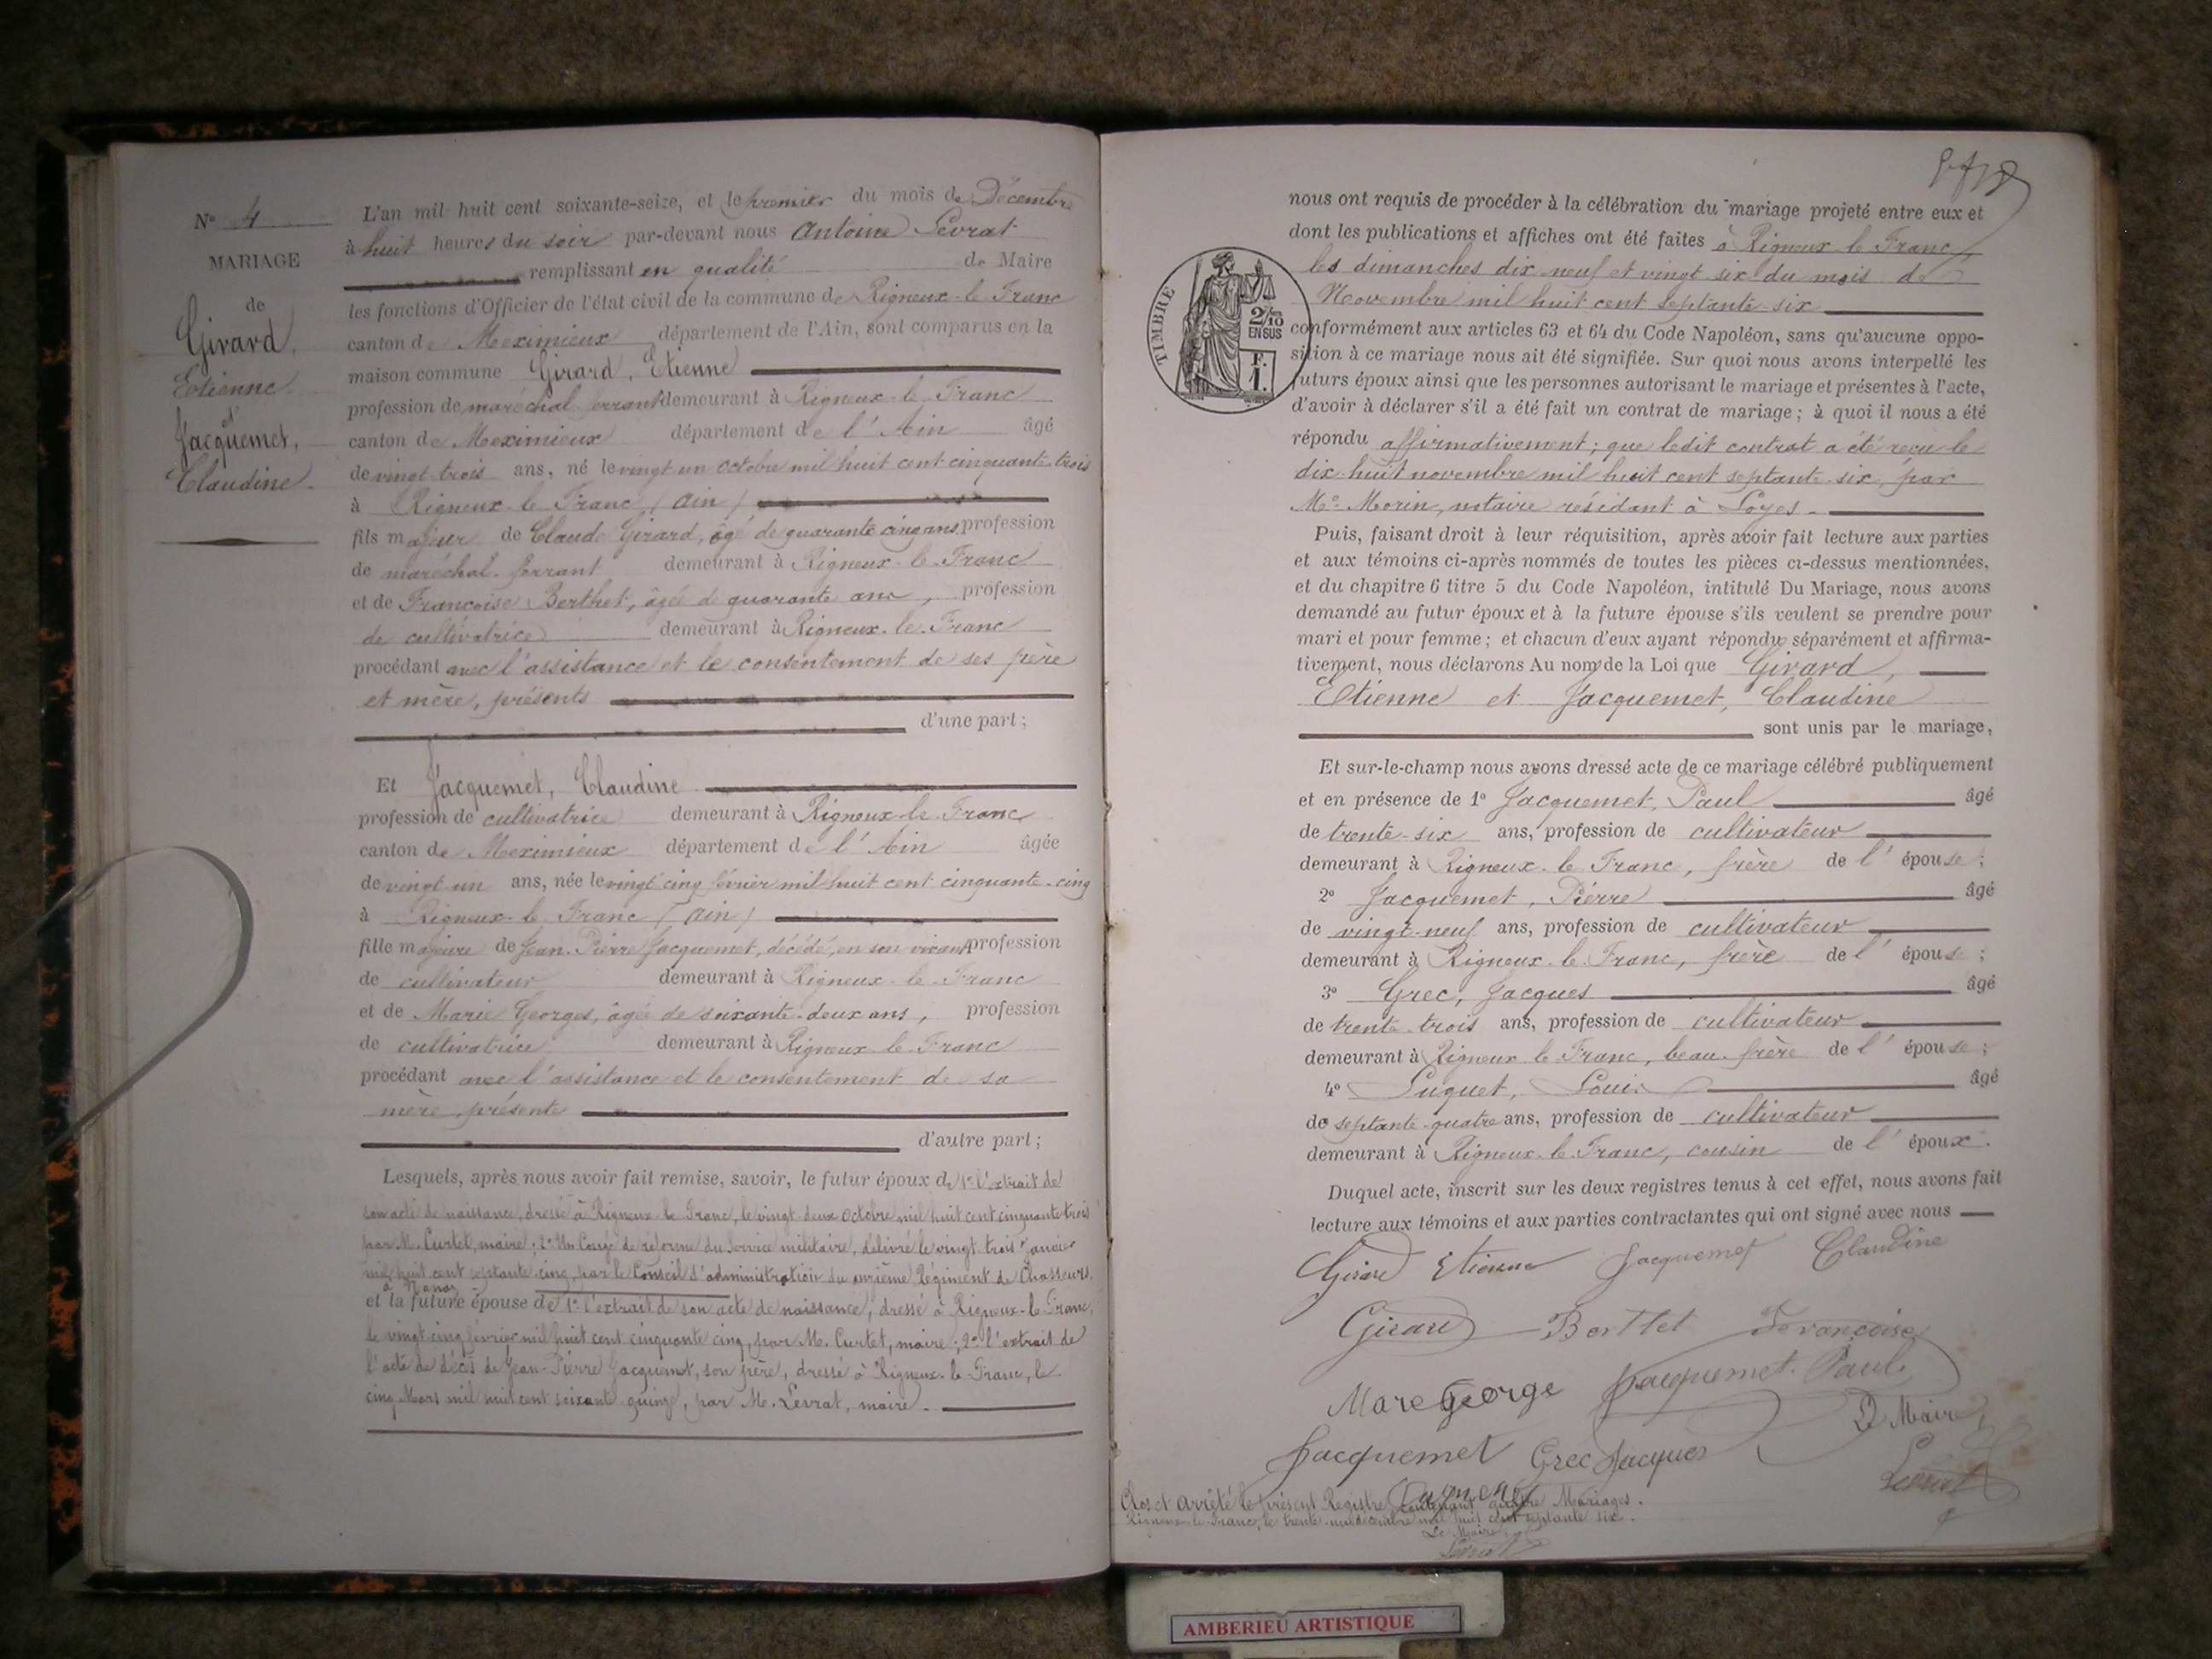 N° 4
MARIAGE
de
Girard,
Etienne
et
Jacquemet,
Claudine.
L'an mil huit cent soixante-seize, et le premier du mois de Décembre
à huit heures du soir par-devant nous Antoine Levrat
remplissant en qualité de Maire
les fonctions d'Officier de l'état civil de la commune de Rigneux-le-Franc
canton de Meximieux département de l'Ain, sont comparus en la
maison commune Girard, Etienne
profession de maréchal ferrant demeurant à Rigneux-le-Franc
canton de Meximieux département de l'Ain âgé
de vingt-trois ans, né le vingt un octobre mil huit cent cinquante-trois
à Rigneux-le-Franc (Ain)
fils majeur de Claude Girard, âgé de quarante cinq ans, profession
de maréchal-ferrant demeurant à Rigneux-le-Franc
et de Françoise Berthet, âgée de quarante ans, profession
de cultivatrice demeurant à Rigneux-le-Franc
procédant avec l'assistance et le consentement de ses père
et mère, présents
d'une part;
Et Jacquemet, Claudine
profession de cultivatrice demeurant à Rigneux-le-Franc
canton de Meximieux département de l'Ain âgée
de vingt-un ans, née le vingt cinq février mil huit cent cinquante-cinq
à Rigneux-le-Franc (Ain)
fille majeure de Jean-Pierre Jacquemet, décédé, en son vivant profession
de cultivateur demeurant à Rigneux-le-Franc
et de Marie Georges, âgée de soixante-deux ans, profession
de cultivatrice demeurant à Rigneux-le-Franc
procédant avec l'assistance et le consentement de sa
mère, présente
d'autre part;
Lesquels, après nous avoir fait remise, savoir, le futur époux de 1° l'extrait de
son acte de naissance, dressé à Rigneux-le-Franc, le vingt-deux octobre mil huit cent cinquante trois
par M. Curtet, maire; 2° Un Congé de réforme du Service militaire, délivré le vingt-trois Janvier
mil huit cent septante-cinq, par le Conseil d'administration du onzième Régiment de Chasseurs,
et la future épouse de 1° l'extrait de son acte de naissance, dressé à Rigneux-le-Franc,
le vingt-cinq février mil huit cent cinquante cinq, par M. Curtet, maire; 2° l'extrait de
l'acte de décès de Jean-Pierre Jacquemet, son père, dressé à Rigneux-le-Franc, le
cinq Mars mil huit cent soixante-quinze, par M. Levrat, maire.
nous ont requis de procéder à la célébration du mariage projeté entre eux et
dont les publications et affiches ont été faites à Rigneux-le-Franc,
les dimanches dix-neuf et vingt-six du mois de
Novembre mil huit cent septante-six
TIMBRE
2/10
EN SUS
F.
1.
conformément aux articles 63 et 64 du Code Napoléon, sans qu'aucune oppo-
sition à ce mariage nous ait été signifiée. Sur quoi nous avons interpellé les
futurs époux ainsi que les personnes autorisant le mariage et présentes à l'acte,
d'avoir à déclarer s'il a été fait un contrat de mariage; à quoi il nous a été
répondu affirmativement; que ledit contrat a été reçu le
dix-huit novembre mil huit cent septante-six, par
Me Morin, notaire résidant à Loyes.
Puis, faisant droit à leur réquisition, après avoir fait lecture aux parties
et aux témoins ci-après nommés de toutes les pièces ci-dessus mentionnées,
et du chapitre 6 titre 5 du Code Napoléon, intitulé Du Mariage, nous avons
demandé au futur époux et à la future épouse s'ils veulent se prendre pour
mari et pour femme; et chacun d'eux ayant répondu séparément et affirma-
tivement, nous déclarons Au nom de la Loi que Girard,
Etienne et Jacquemet, Claudine
sont unis par le mariage,
Et sur-le-champ nous avons dressé acte de ce mariage célébré publiquement
et en présence de 1° Jacquemet, Paul âgé
de trente-six ans, profession de cultivateur
demeurant à Rigneux-le-Franc, frère de l'épouse;
2° Jacquemet, Pierre âgé
de vingt-neuf ans, profession de cultivateur
demeurant à Rigneux-le-Franc, frère de l'épouse;
3° Grec, Jacques âgé
de trente-trois ans, profession de cultivateur
demeurant à Rigneux-le-Franc, beau-frère de l'épouse;
4° Luquet, Louis âgé
de septante-quatre ans, profession de cultivateur
demeurant à Rigneux-le-Franc, cousin de l'époux.
Duquel acte, inscrit sur les deux registres tenus à cet effet, nous avons fait
lecture aux témoins et aux parties contractantes qui ont signé avec nous
Girard Etienne Jacquemet Claudine
Girard Berthet Françoise
Mare George Jacquemet Paul
Le Maire
Jacquemet Grec Jacques
Levrat
Clos et arrêté le présent Registre contenant quatre Mariages.
Rigneux-le-Franc, le trente-un décembre mil huit cent septante six.
Le Maire,
Levrat
AMBERIEU ARTISTIQUE